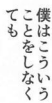 僕はこういう
ことをしなく
ても